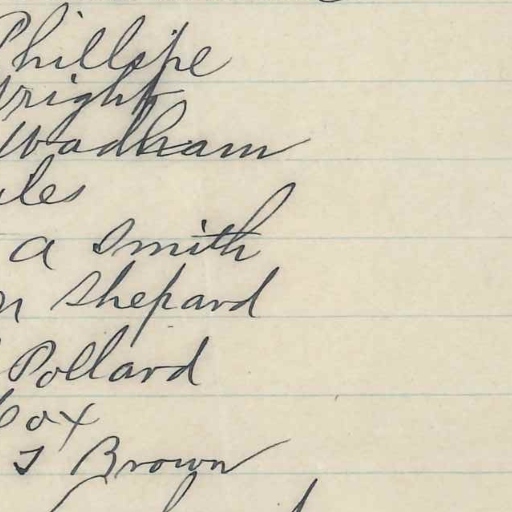 Phillipe
Wright
Wadham
a Smith
Shepard
Pollard
Cox
J Brown